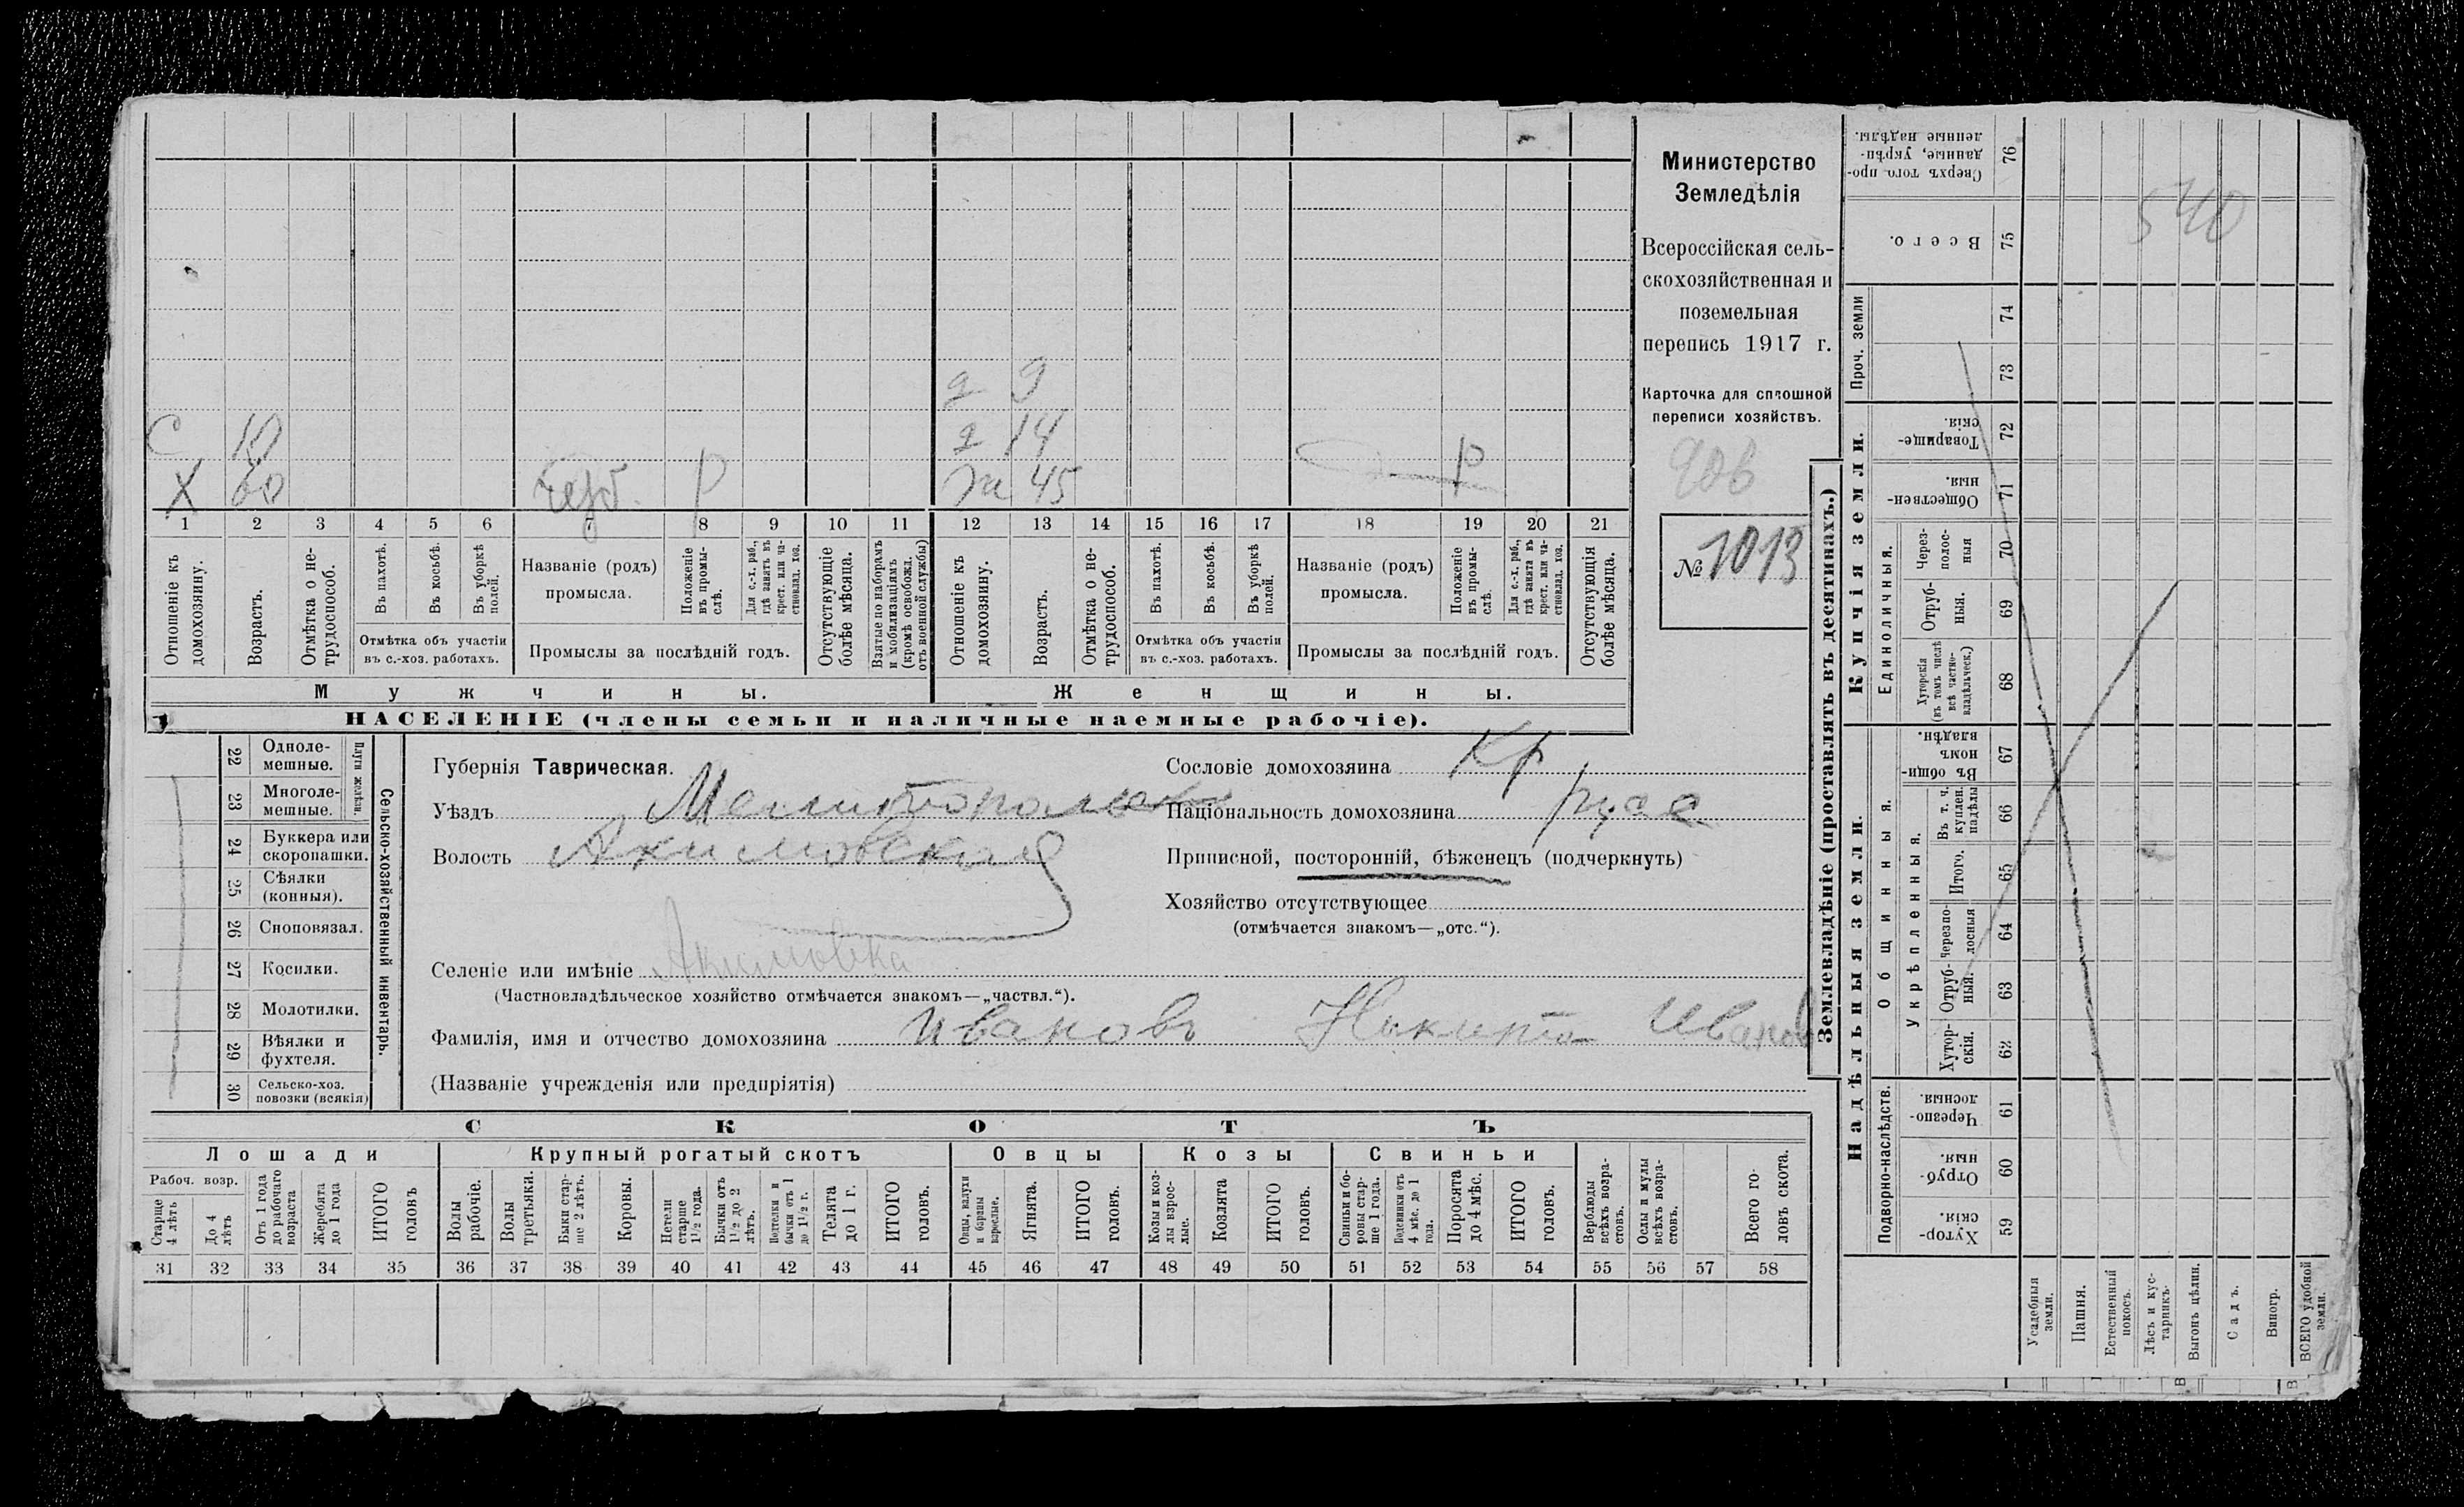 Министерство
Земледѣлія
Всероссійская сель-
скохозяйственная и
поземельная
перепись 1917 г.
Карточка для сплошной
переписи хозяйствъ.
906
№ 1013
540
д 9
С 10 д 14
Х 60 Р ж 45 Р
1 2 3 4 5 6 7 8 9 10 11 12 13 14 15 16 17 18 19 20 21
Отношеніе къ домохозяину.
Возрастъ.
Отмѣтка о не-трудоспособ.
Въ пахотѣ.
Въ косьбѣ.
Въ уборкѣ полей.
Отмѣтка объ участіи въ с.-хоз. работахъ.
Названіе (родъ) промысла.
Положеніе въ промы-слѣ.
Для с.-х. раб., гдѣ занятъ въ крест. или ча-стновлад. хоз.
Промыслы за послѣдній годъ.
Отсутствующіе болѣе мѣсяца.
Взятые по наборамъ и мобилизаціямъ (кромѣ освобожд. отъ военной службы)
Отношеніе къ домохозяину.
Возрастъ.
Отмѣтка о не-трудоспособ.
Въ пахотѣ.
Въ косьбѣ.
Въ уборкѣ полей.
Отмѣтка объ участіи въ с.-хоз. работахъ.
Названіе (родъ) промысла.
Положеніе въ промы-слѣ.
Для с.-х. раб., гдѣ занята въ крест. или ча-стновлад. хоз.
Промыслы за послѣдній годъ.
Отсутствующія болѣе мѣсяца.
Мужчины. Женщины.
НАСЕЛЕНІЕ (члены семьи и наличные наемные рабочіе).
Сельско-хозяйственный инвентарь.
Плуги желѣзн.
22 Одноле-мешные.
23 Многоле-мешные.
24 Буккера или скоропашки.
25 Сѣялки (конныя).
26 Сноповязал.
27 Косилки.
28 Молотилки.
29 Вѣялки и фухтеля.
30 Сельско-хоз. повозки (всякія)
Губернія Таврическая.
Уѣздъ Мелитопольск
Волость Акимовская
Селеніе или имѣніе Акимовка
(Частновладѣльческое хозяйство отмѣчается знакомъ—„частвл.“).
Фамилія, имя и отчество домохозяина Ивановъ Никита Иванов
(Названіе учрежденія или предпріятія)
Сословіе домохозяина Кр
Національность домохозяина русс
Приписной, посторонній, бѣженецъ (подчеркнуть)
Хозяйство отсутствующее
(отмѣчается знакомъ—„отс.“).
СКОТЪ
Лошади Крупный рогатый скотъ Овцы Козы Свиньи
Рабоч. возр.
Старше 4 лѣтъ
До 4 лѣтъ
Отъ 1 года до рабочаго возраста
Жеребята до 1 года
ИТОГО головъ
Волы рабочіе.
Волы третьяки.
Быки стар-ше 2 лѣтъ.
Коровы.
Нетели старше 1½ года.
Бычки отъ 1½ до 2 лѣтъ.
Нетелки и бычки отъ 1 до 1½ г.
Телята до 1 г.
ИТОГО головъ.
Овцы, валухи и бараны взрослые.
Ягнята.
ИТОГО головъ.
Козы и коз-лы взрос-лые.
Козлята
ИТОГО головъ.
Свиньи и бо-ровы стар-ше 1 года.
Подсвинки отъ 4 мѣс. до 1 года.
Поросята до 4 мѣс.
ИТОГО головъ.
Верблюды всѣхъ возра-стовъ.
Ослы и мулы всѣхъ возра-стовъ.
Всего го-ловъ скота.
31 32 33 34 35 36 37 38 39 40 41 42 43 44 45 46 47 48 49 50 51 52 53 54 55 56 57 58
Землевладѣніе (проставлять въ десятинахъ.)
Надѣльныя земли.
Подворно-наслѣдств.
59 Хутор-скія.
60 Отруб-ныя.
61 Черезпо-лосныя.
Общинныя.
Укрѣпленныя.
62 Хутор-скія.
63 Отруб-ный.
64 Черезпо-лосныя
65 Итого.
66 Въ т. ч. куплен. надѣлы
67 Въ общи-номъ владѣн.
Купчія земли.
Единоличныя.
68 Хуторскія (въ томъ числѣ всѣ частно-владѣльческ.)
69 Отруб-ныя.
70 Через-полос-ныя
71 Обществен-ныя.
72 Товарище-скія.
Проч. земли
73
74
75 Всего.
76 Сверхъ того про-данные, укрѣп-ленные надѣлы.
Усадебныя земли.
Пашня.
Естественный покосъ.
Лѣсъ и кус-тарникъ.
Выгонъ цѣлин.
Садъ.
Виногр.
ВСЕГО удобной земли.